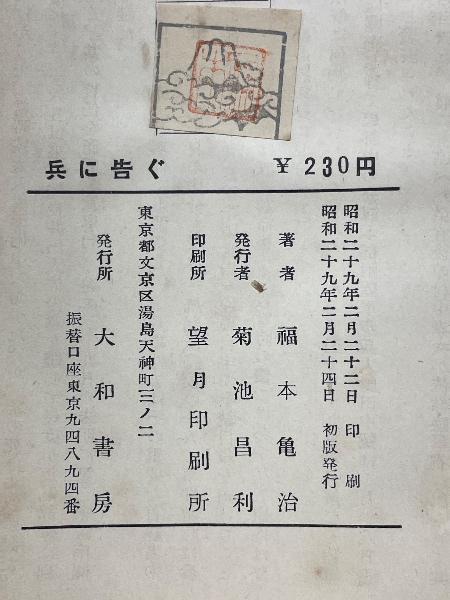 兵に告ぐ ￥230円
昭和二十九年二月二十二日 印刷
昭和二十九年二月二十四日 初版発行
著者 福本亀治
発行者 菊池昌利
印刷所 望月印刷所
東京都文京区湯島天神町三ノ二
発行所 大和書房
振替口座東京九四八九四番